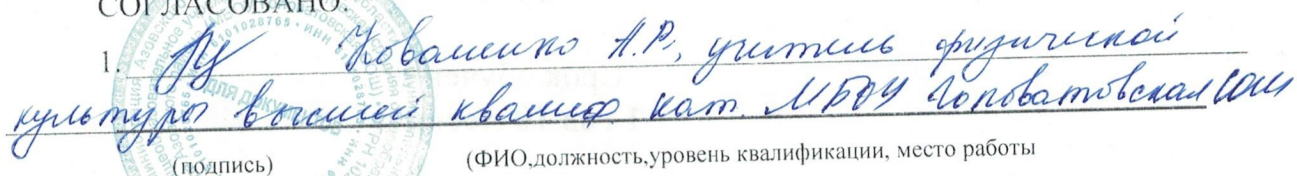 СОГЛАСОВАНО:
1. Коваленко А.Р., учитель физической
культуры высшей квалиф. кат. МБОУ Головатовская СОШ
(подпись) (ФИО,должность,уровень квалификации, место работы